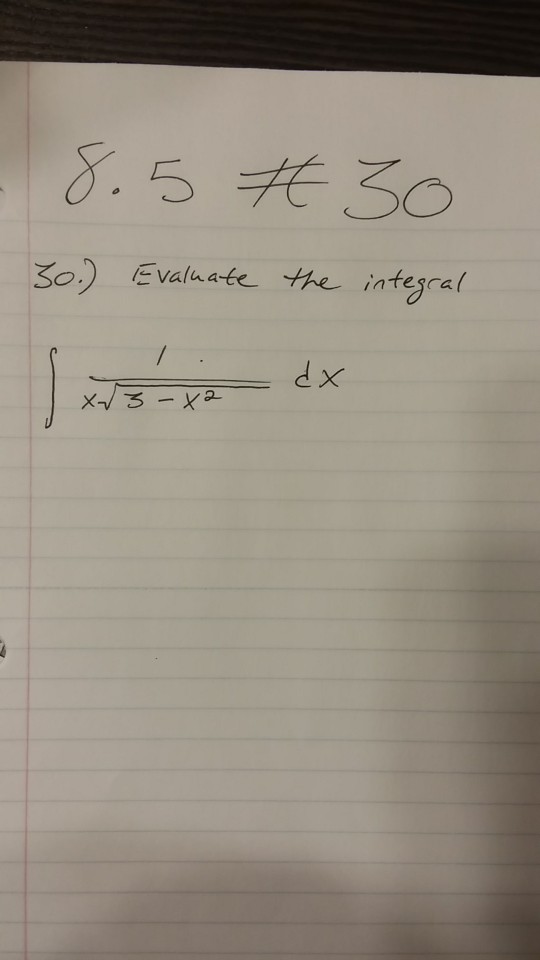 8.5 # 30
30.) Evaluate the integral
∫ 1 / (x√(3 - x²)) dx